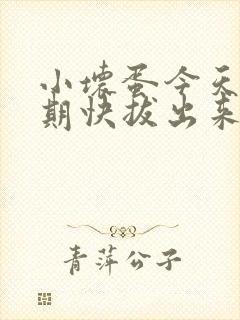 小壞蛋今天
期快拔出来
青萍公子